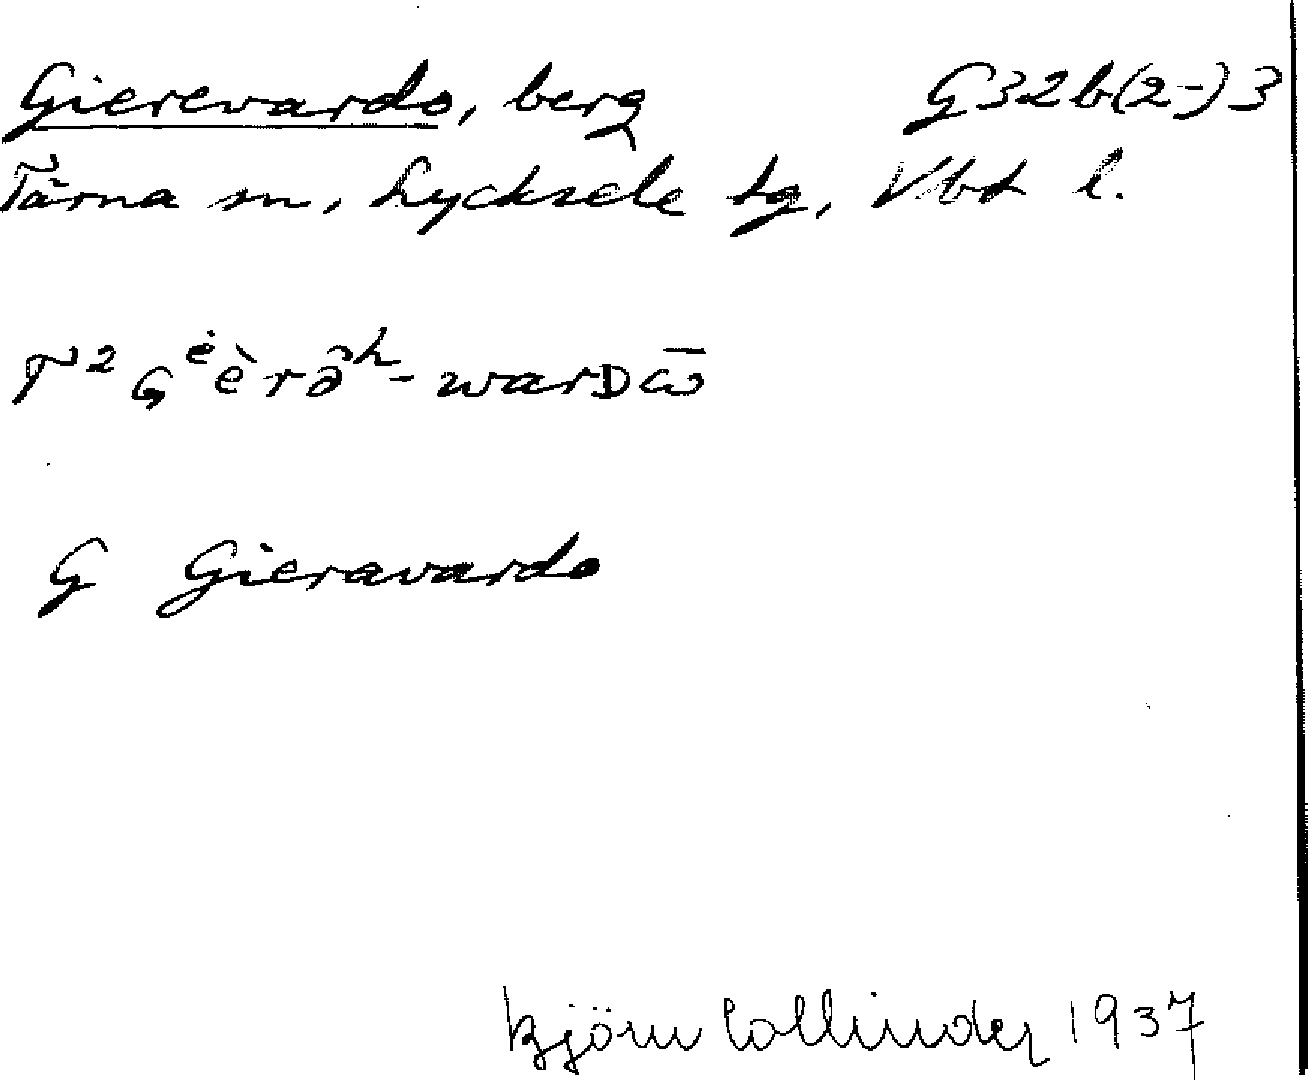 Gierevardo, berg G32b(2-)3
Tärna sn, Lycksele tg, Vbt l.
T² Gᵉ̇èrə̑ʰ-warDω̄
G Gieravardo
Björn Collinder 1937